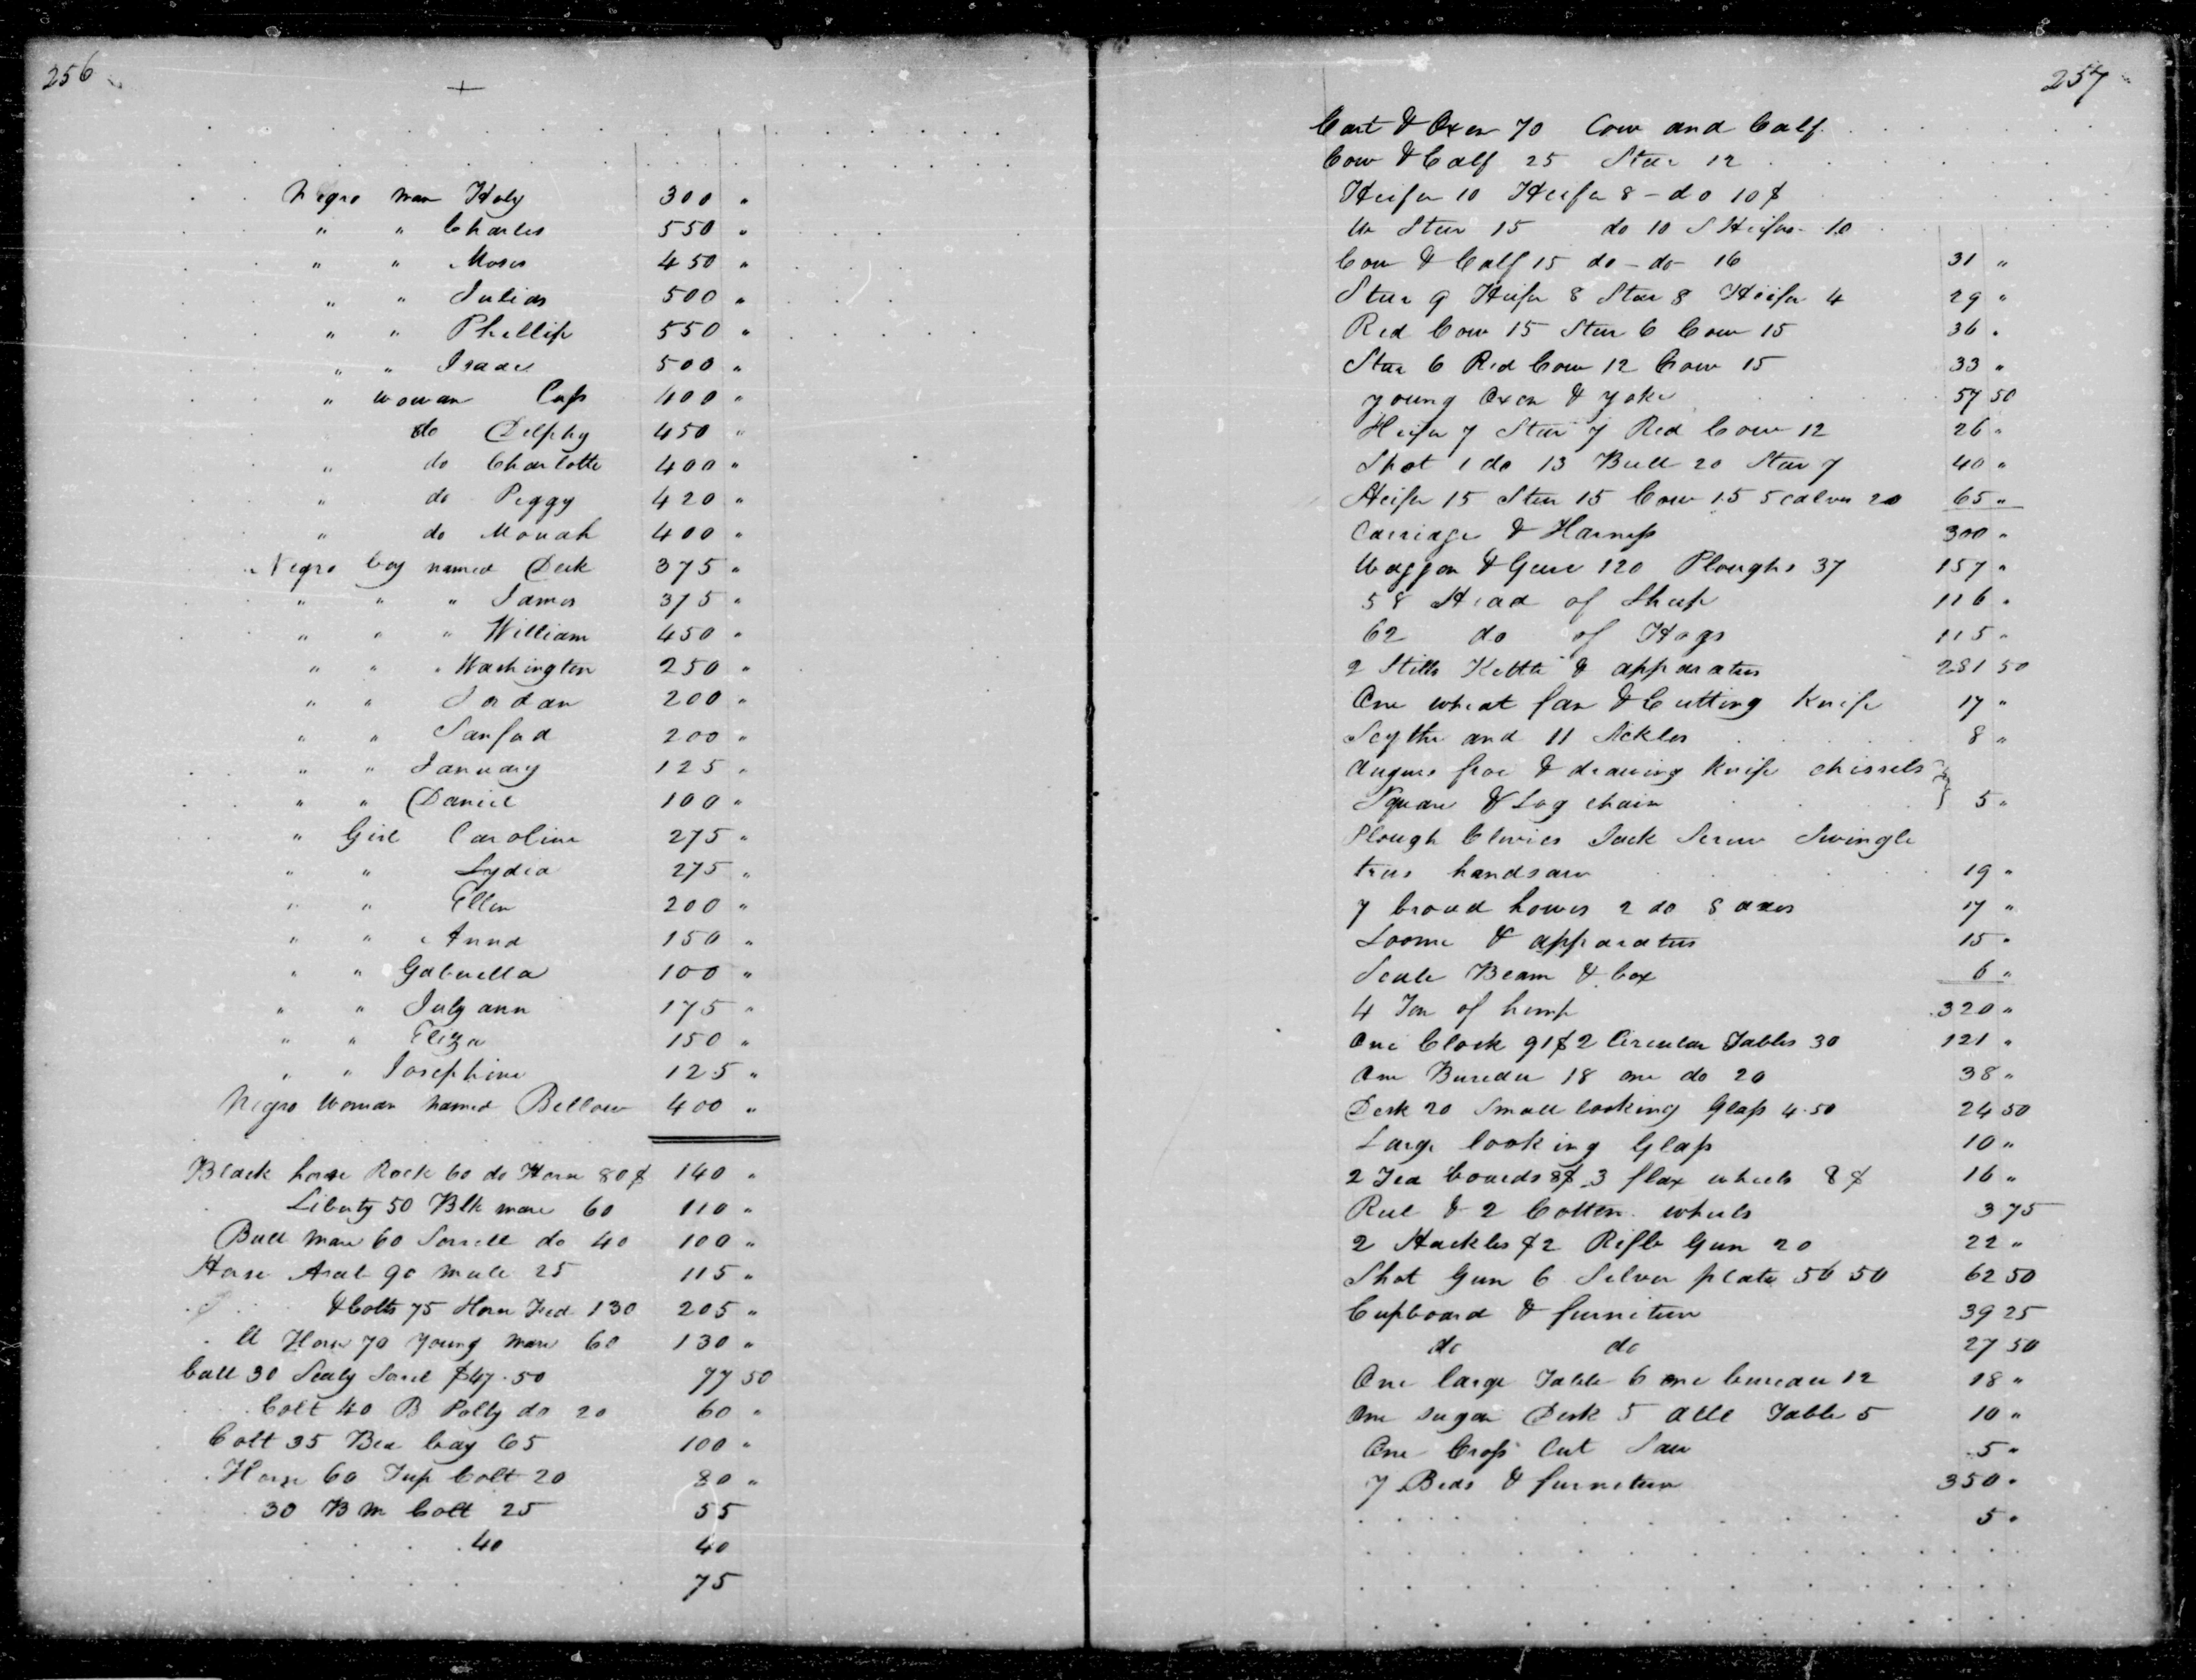 256
Negro man Haly 300 "
" " Charles 550 "
" " Moses 450 "
" " Julias 500 "
" " Phillip 550 "
" " Isaac 500 "
" woman Caps 400 "
do Delphy 450 "
" do Charlotte 400 "
" do Peggy 420 "
" do Mouah 400 "
Negro boy named Deck 375 "
" " " James 375 "
" " " William 450 "
" " " Washington 250 "
" " Jordan 200 "
" " Sanford 200 "
" " January 125 "
" " Daniel 100 "
" Girl Caroline 275 "
" " Lydia 275 "
" " Ellen 200 "
" " Anna 150 "
" " Gabriella 100 "
" " July ann 175 "
" " Eliza 150 "
" " Josephine 125 "
Negro Woman named Bellow 400 "
Black horse Rock 60 do Horse 80$ 140 "
Liberty 50 Blk mare 60 110 "
Buck mare 60 Sorrell do 40 100 "
Horse Arab 90 mule 25 115 "
& Colts 75 Horse Fred 130 205 "
Horse 70 young mare 60 130 "
Colt 30 Sealy Sorel $47.50 77 50
Colt 40 B Polly do 20 60 "
Colt 35 Bea bay 65 100 "
Horse 60 Jup Colt 20 80 "
30 B M Colt 25 55
40 40
75
257
Cart & Oxen 70 Cow and Calf
Cow & Calf 25 Steer 12
Heifer 10 Heifer 8 - do 10$
W Steer 15 do 10 S Heifer 10
Cow & Calf 15 do - do - 16 31 "
Steer 9 Heifer 8 Steer 8 Heifer 4 29 "
Red Cow 15 Steer 6 Cow 15 36 "
Steer 6 Red Cow 12 Cow 15 33 "
young Oxen & yoke 57 50
Heifer 7 Steer 7 Red Cow 12 26 "
Shot 1 do 13 Bull 20 Steer 7 40 "
Heifer 15 Steer 15 Cow 15 5 calves 20 65 "
Carriage & Harness 300 "
Waggon & Gear 120 Ploughs 37 157 "
58 Head of Sheep 116 "
62 do of Hogs 115 "
2 Stills Kettle & apparatus 281 50
One wheat fan & Cutting Knife 17 "
Scythe and 11 Sickles 8 "
Augurs froe & drawing knife chissels
Square & Log chain 5 "
Plough Clevies Jack Screw Swingle
trees handsaw 19 "
7 broad howes 2 do 8 axes 17 "
Loome & apparatus 15 "
Scale Beam & box 6 "
4 Ton of hemp 320 "
One Clock 91$ 2 Circular Tables 30 121 "
One Bureau 18 one do 20 38 "
Desk 20 Small looking Glass 4.50 24 50
Large looking Glass 10 "
2 Tea boards 8$ 3 flax wheels 8$ 16 "
Reel & 2 Cotton wheels 3 75
2 Hackles $2 Rifle Gun 20 22 "
Shot Gun 6 Silver plate 56 50 62 50
Cupboard & furniture 39 25
do do 27 50
One large Table 6 one bureau 12 18 "
One sugar Desk 5 Table 5 10 "
One Cross Cut Saw 5 "
7 Beds & furniture 350 "
5 "